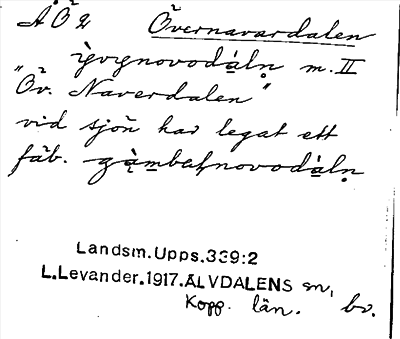 ÅÖ2 Övernavardalen
ỳvṛnovodàlṇ m. II
"Öv. Naverdalen"
vid sjön har legat ett
fäb. gàmbalnovodàlṇ
Landsm.Upps.339:2
L.Levander.1917.ÄLVDALENS sn,
Kopp. län. bv.